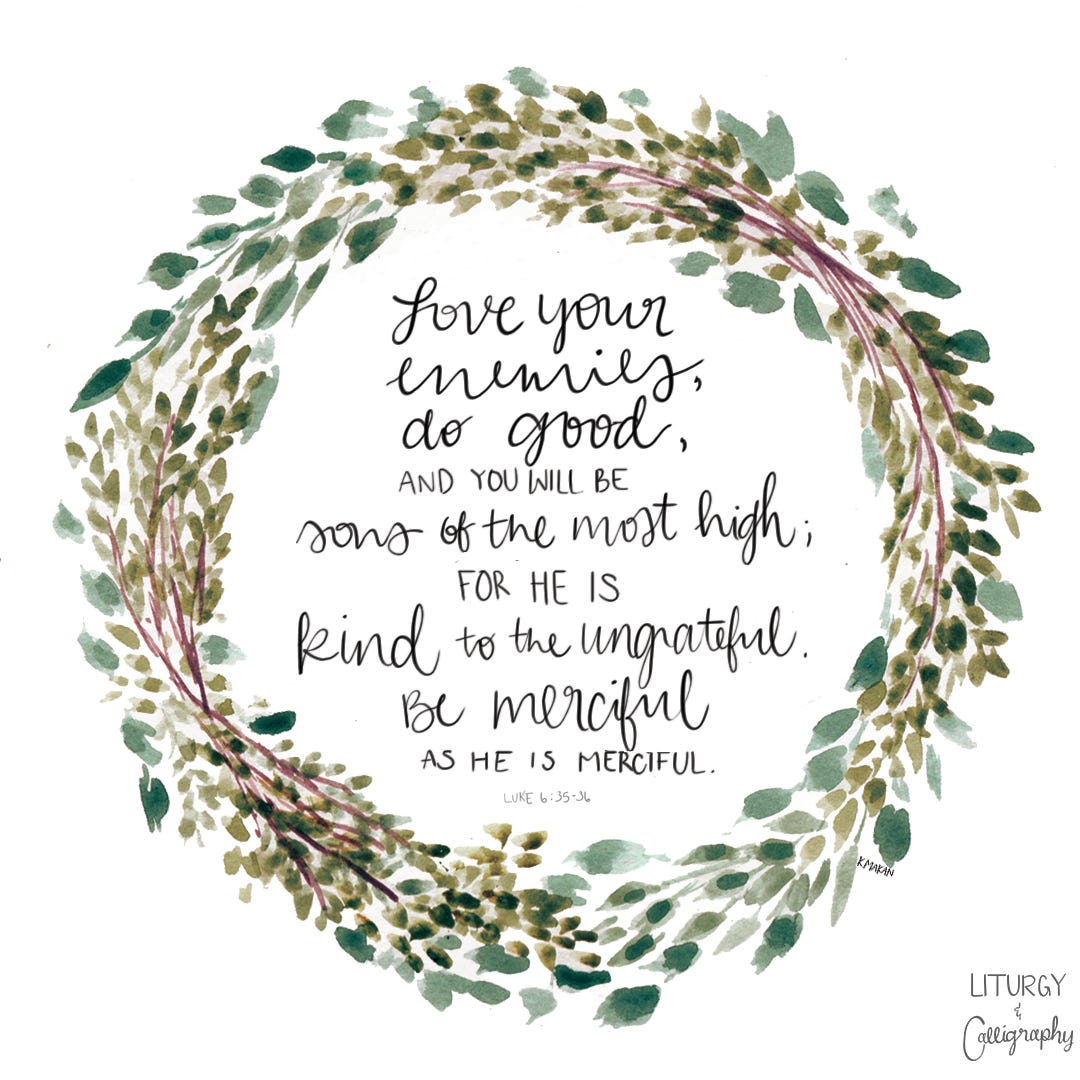 Love your
enemies,
do good,
AND YOU WILL BE
sons of the most high;
FOR HE IS
kind to the ungrateful.
Be merciful
AS HE IS MERCIFUL.
LUKE 6:35-36
KMAKAN
LITURGY
&
Calligraphy